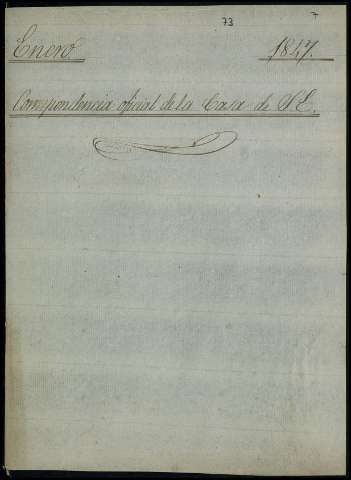 73 7
Enero 1847.
Correspondencia oficial de la Casa de S.E.